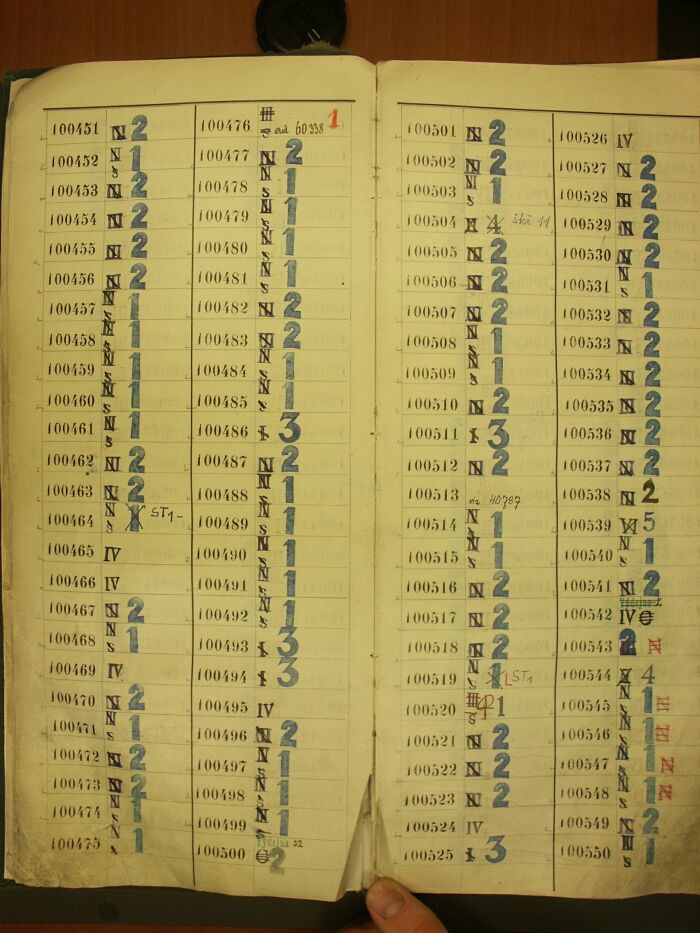 100451 N 2
100452 N s 1
100453 N 2
100454 N 2
100455 N 2
100456 N 2
100457 N s 1
100458 N s 1
100459 N s 1
100460 N s 1
100461 N s 1
100462 N 2
100463 N 2
100464 N s 1 ST1-
100465 IV
100466 IV
100467 N 2
100468 N s 1
100469 IV
100470 N 2
100471 N s 1
100472 N 2
100473 N 2
100474 N s 1
100475 N s 1
100476 III 60.338 1
100477 N 2
100478 N s 1
100479 N s 1
100480 N s 1
100481 N s 1
100482 N 2
100483 N 2
100484 N s 1
100485 N s 1
100486 I 3
100487 N 2
100488 N s 1
100489 N s 1
100490 N s 1
100491 N s 1
100492 N s 1
100493 I 3
100494 I 3
100495 IV
100496 N 2
100497 N s 1
100498 N s 1
100499 N s 1
100500 2
100501 N 2
100502 N 2
100503 N s 1
100504 4 11
100505 N 2
100506 N 2
100507 N 2
100508 N s 1
100509 N s 1
100510 N 2
100511 I 3
100512 N 2
100513 40787
100514 N s 1
100515 N s 1
100516 N 2
100517 N 2
100518 N 2
100519 N s 1 ST1
100520 III s 1
100521 N 2
100522 N 2
100523 N 2
100524 IV
100525 I 3
100526 IV
100527 N 2
100528 N 2
100529 N 2
100530 N 2
100531 N s 1
100532 N 2
100533 N 2
100534 N 2
100535 N 2
100536 N 2
100537 N 2
100538 N 2
100539 VI 5
100540 N s 1
100541 N 2
100542 IV
100543 2 N
100544 4
100545 N s 1
100546 N s 1 N
100547 N s 1 N
100548 N s 1 N
100549 N 2
100550 N s 1